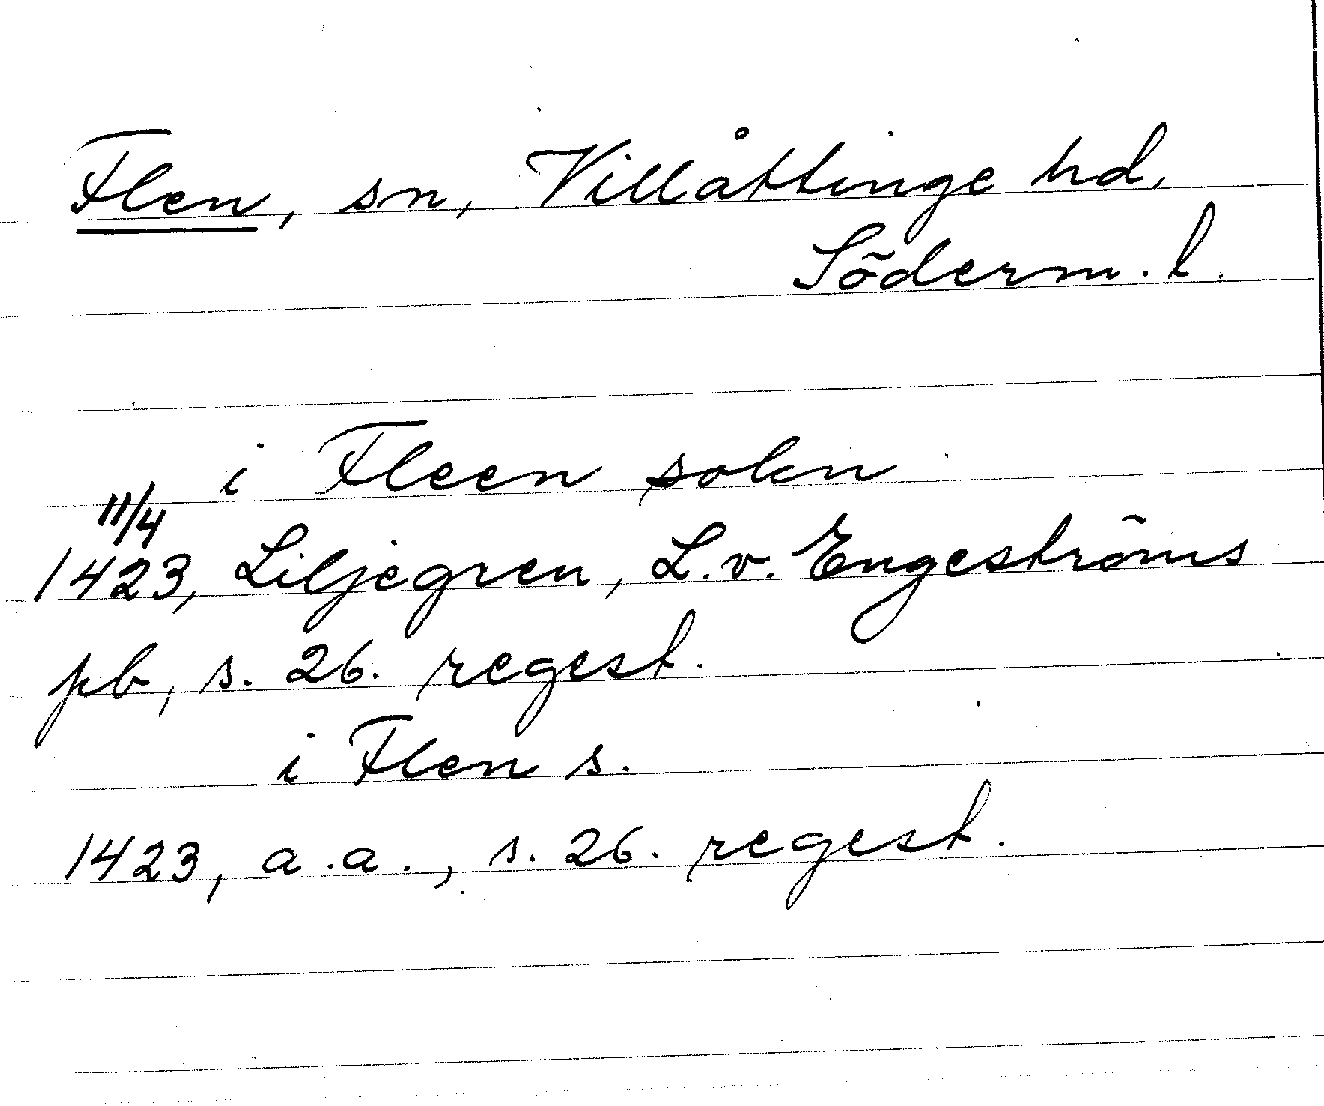 Flen, sn, Villåttinge hd,
Söderm. l.
i Fleen sokn
11/4
1423, Liljegren, L. v. Engeströms
pb, s. 26. regest.
i Flen s.
1423, a.a., s. 26. regest.